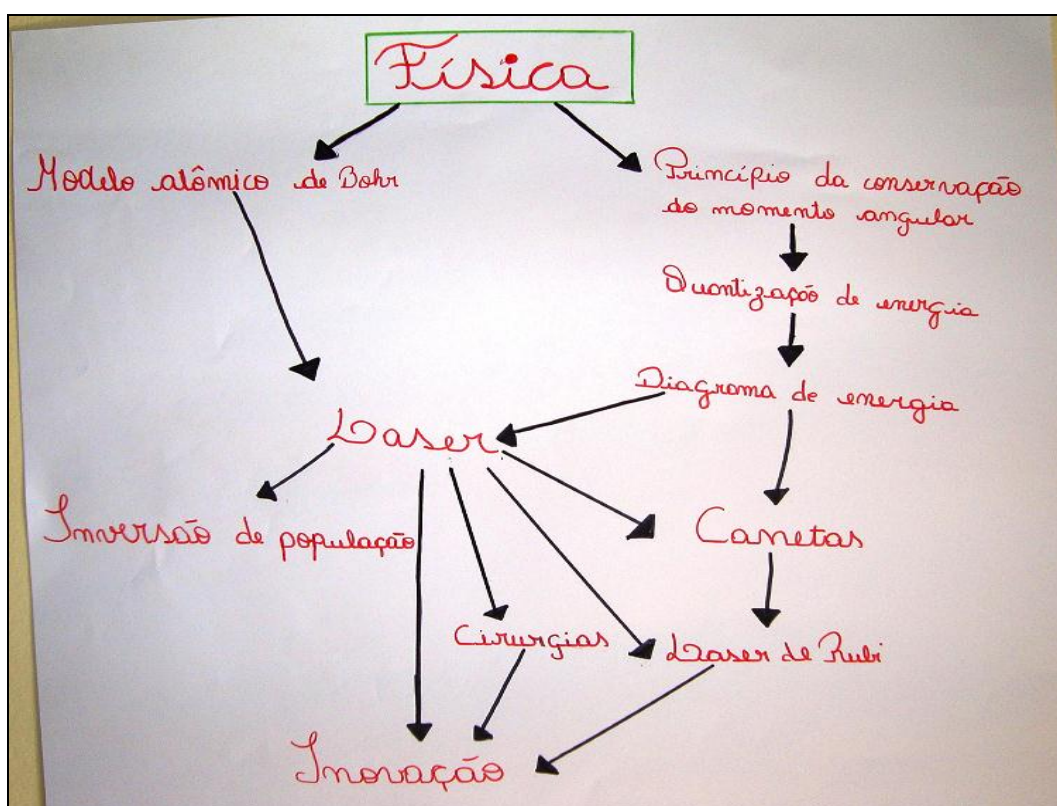 Física
Modelo atômico de Bohr
Princípio da conservação
do momento angular
Quantização de energia
Diagrama de energia
Laser
Inversão de população
Canetas
Cirurgias
Laser de Rubi
Inovação